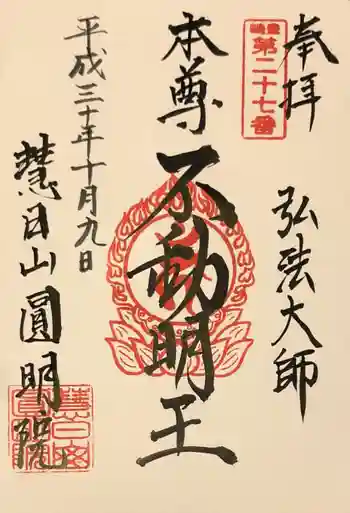 奉拝
豊嶋
第二十七番
弘法大師
本尊
不動明王
平成三十年十月九日
慧日山圓明院